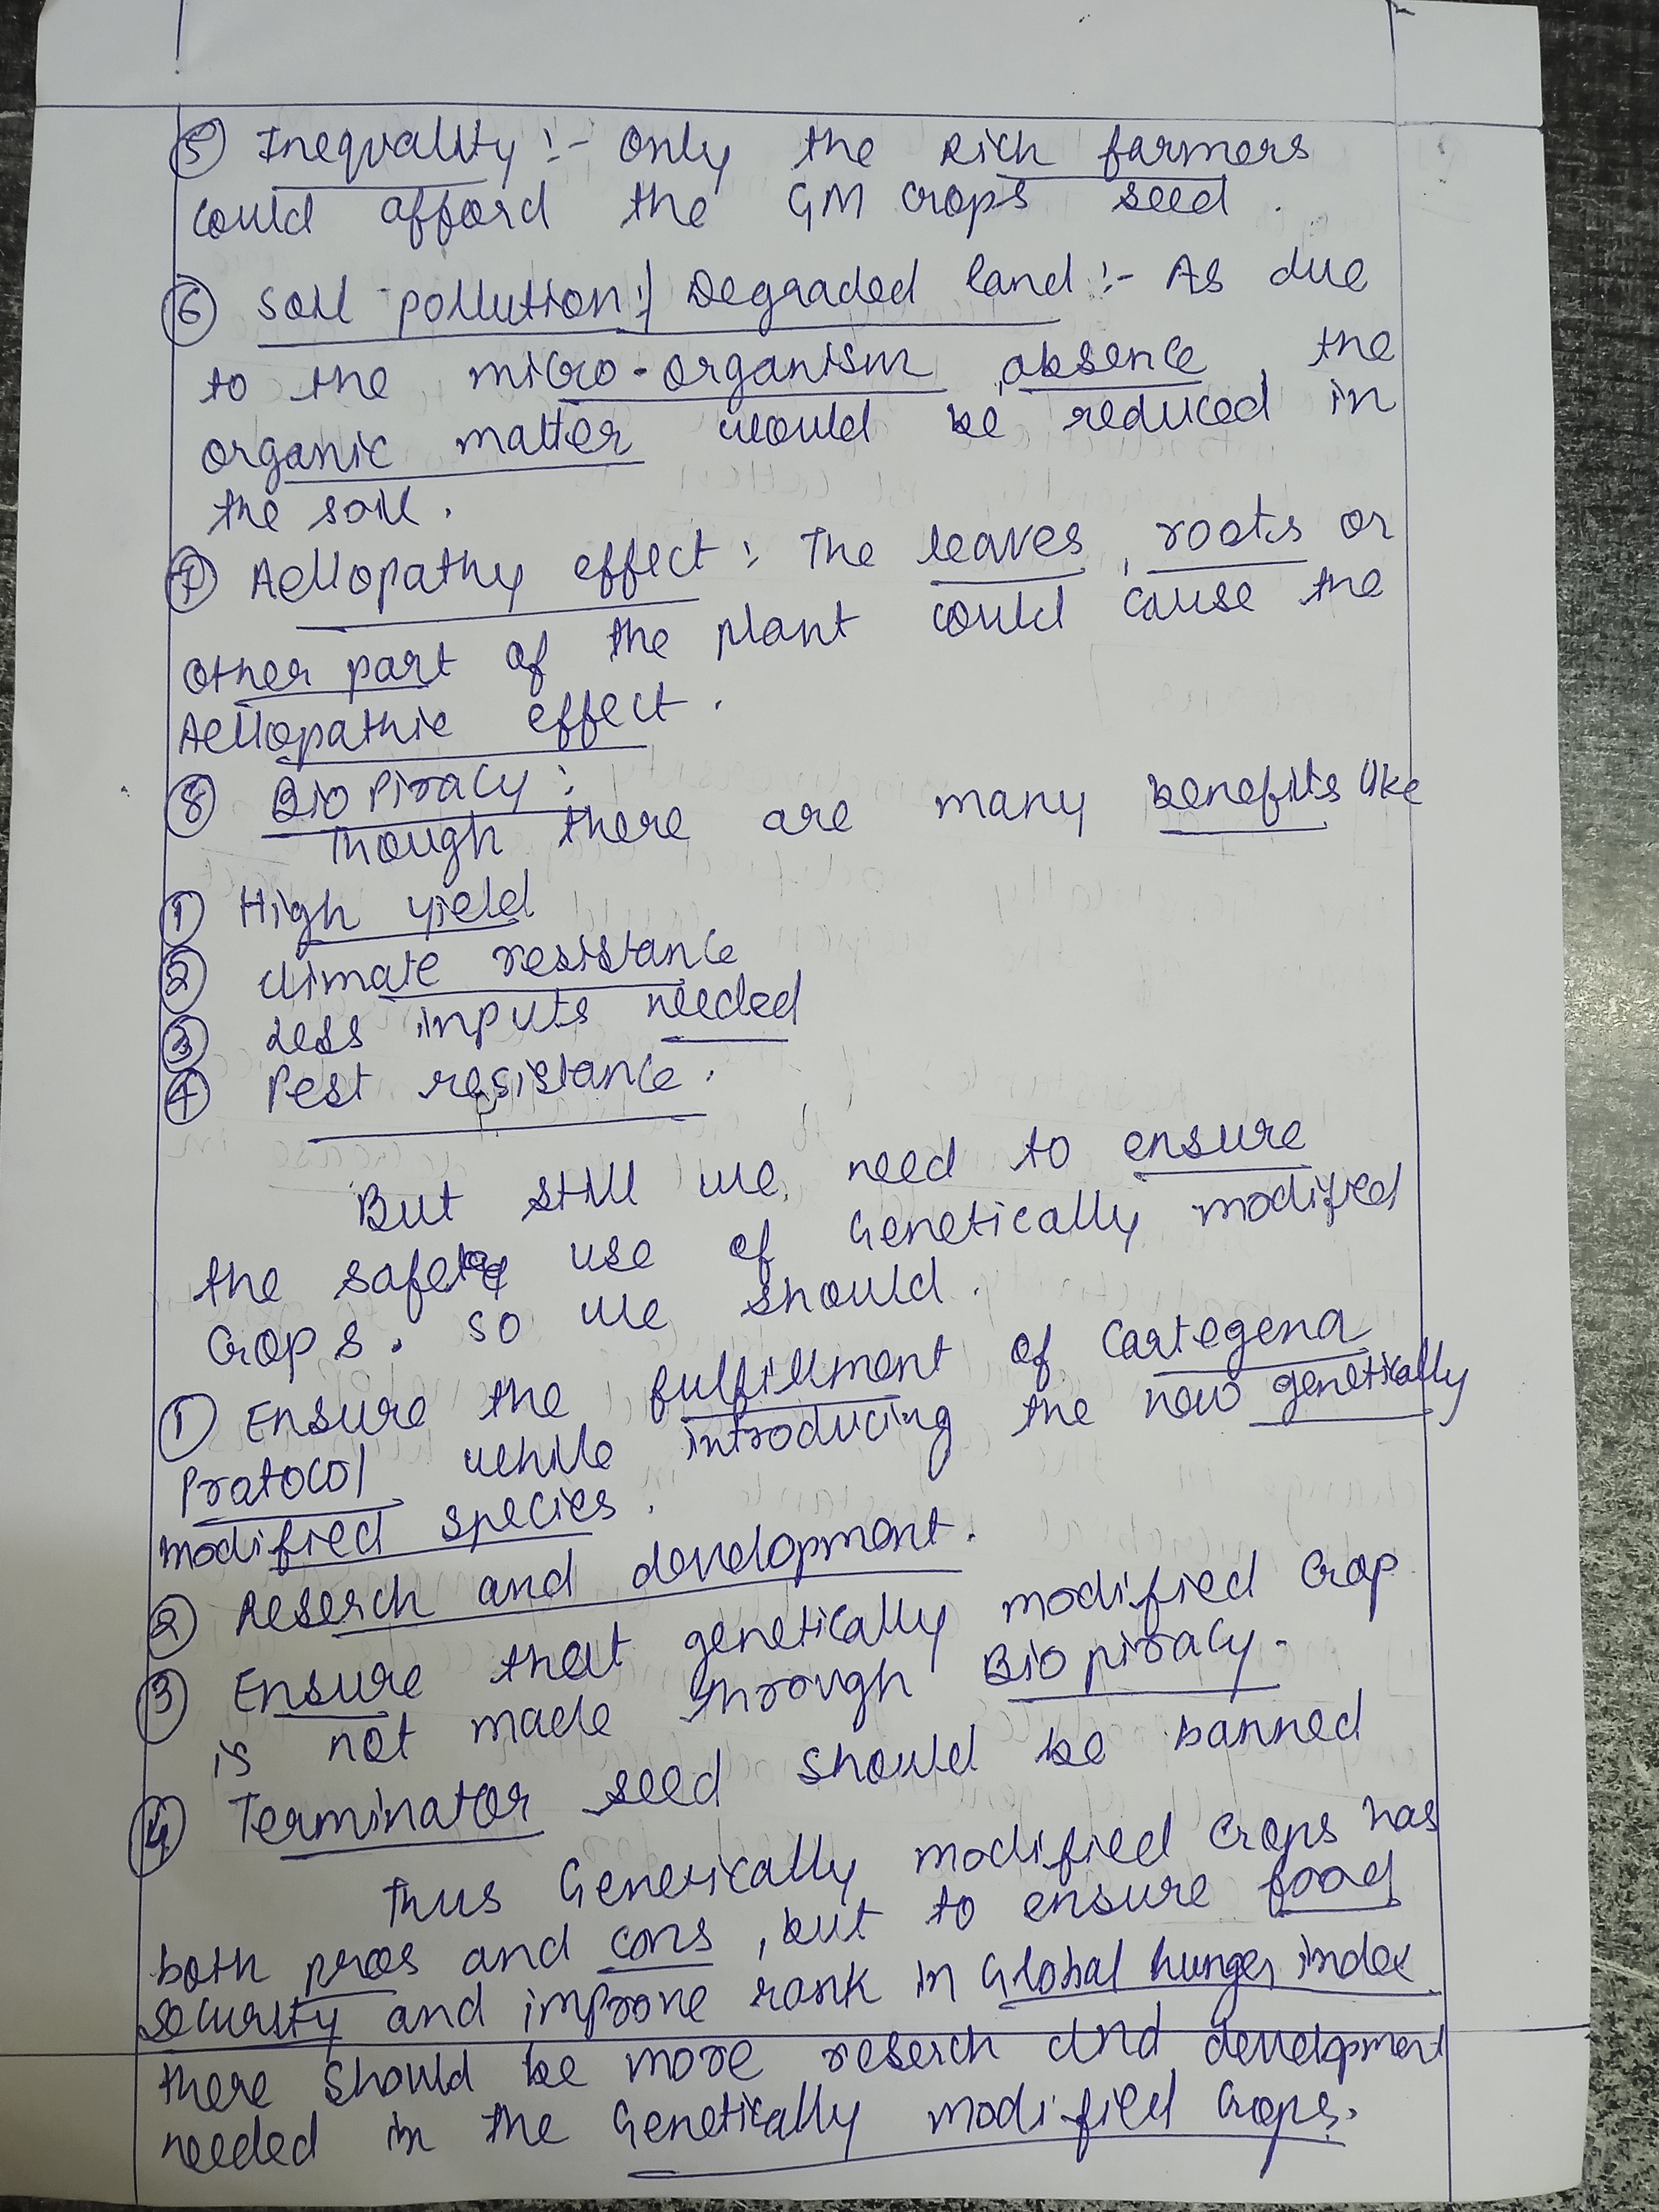 ⑤ Inequality :- Only the Rich farmers
could afford the GM crops seed.
⑥ Soil pollution / Degraded land :- As due
to the micro-organism absence, the
organic matter would be reduced in
the soil.
⑦ Aellopathy effect : The leaves, roots or
other part of the plant could cause the
Aellopathic effect.
⑧ Bio Piracy :
Though there are many benefits like
① High yield
② climate resistance
③ Less inputs needed
④ Pest resistance.
But still we need to ensure
the safe use of Genetically modified
Crops. So we should.
① Ensure the fulfillment of Cartegena
Protocol while introducing the new genetically
modified species.
② Reserch and development.
③ Ensure that genetically modified Crop
is not made through Bio piracy.
④ Terminator seed should be banned
Thus Genetically modified Crops has
both pros and cons, but to ensure food
security and improve rank in Global hunger index
there should be more reserch and development
needed in the Genetically modified Crops.